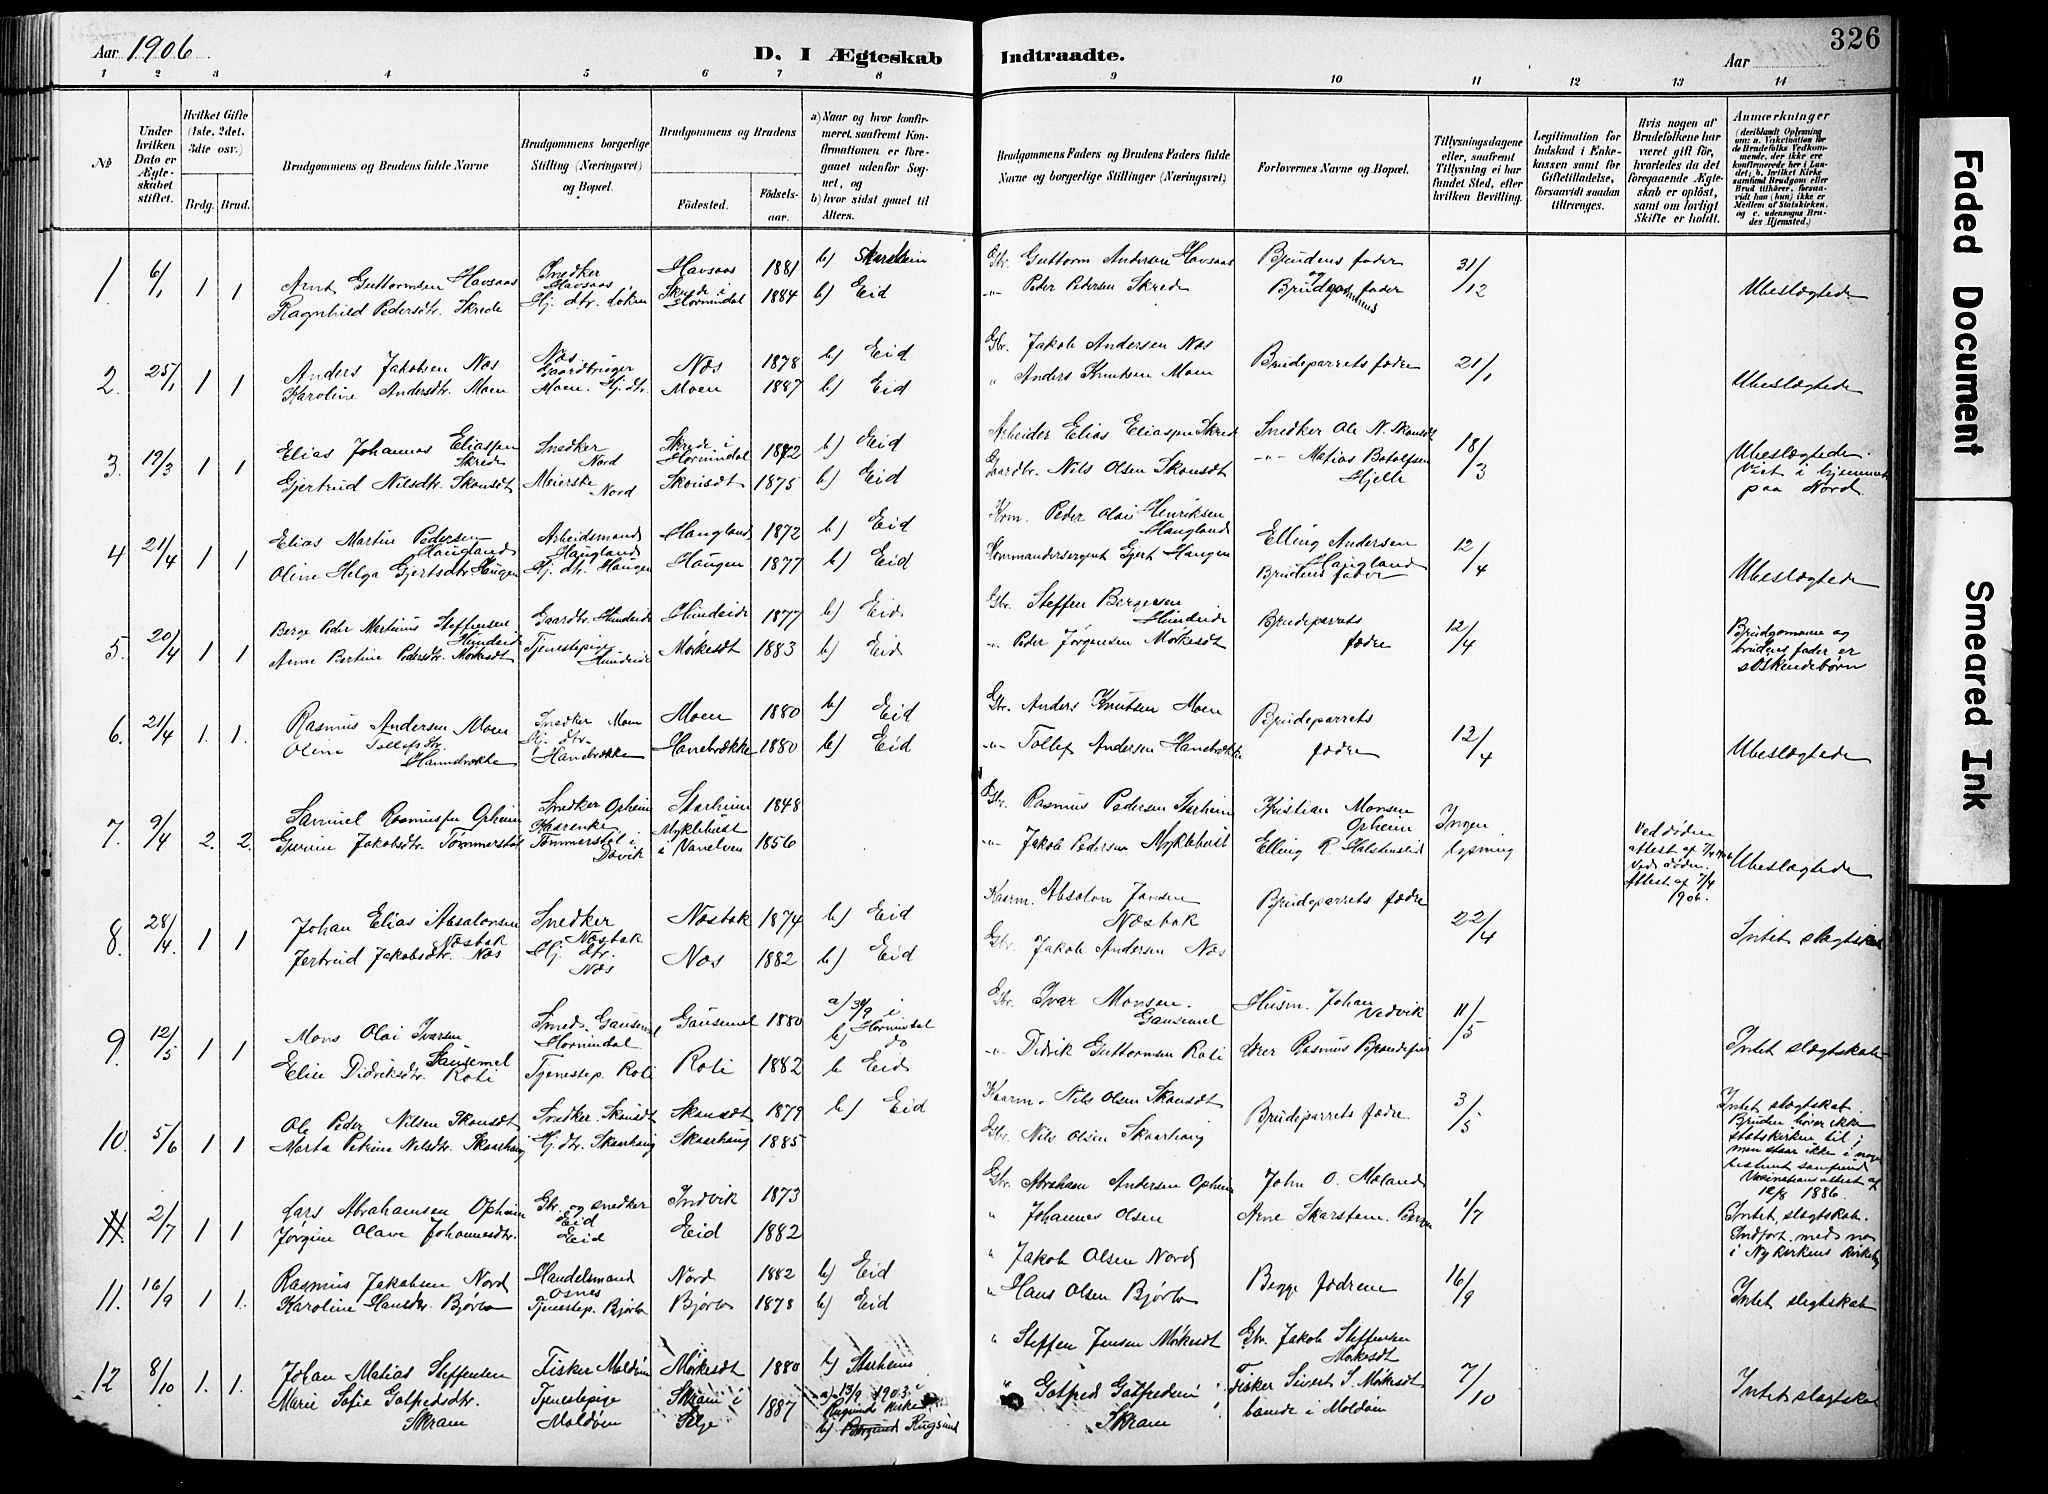 Aar 1906.
D. I Ægteskab
Indtraadte.
Aar
326
1 2 3 4 5 6 7 8 9 10 11 12 13 14
№
Under hvilken Dato er Ægteskabet stiftet.
Hvilket Gifte (1ste, 2det, 3die osv.)
Brdg. Brud.
Brudgommens og Brudens fulde Navne
Brudgommens borgerlige Stilling (Næringsvei) og Bopæl.
Brudgommens og Brudens
Fødested. Fødselsaar.
a) Naar og hvor konfirmeret, saafremt Konfirmationen er foregaaet udenfor Sognet, og
b) hvor sidst gaaet til Alters.
Brudgommens Faders og Brudens Faders fulde Navne og borgerlige Stillinger (Næringsvei)
Forlovernes Navne og Bopæl.
Tillysningsdagene eller, saafremt Tillysning ei har fundet Sted, efter hvilken Bevilling.
Legitimation for Indskud i Enkekassen samt for Giftetilladelse, forsaavidt saadan tiltrænges.
Hvis nogen af Brudefolkene har været gift før, hvorledes da det foregaaende Ægteskab er opløst, samt om lovligt Skifte er holdt.
Anmærkninger
(deriblandt Oplysning om: a. Vakcination for de Brudefolks Vedkommende, der ikke ere konfirmerede her i Landet; b. hvilket Kirkesamfund Brudgom eller Brud tilhører, forsaavidt han (hun) ikke er Medlem af Statskirken, og c. udensogns Brudes Hjemsted.)
1 6/1 1 1 Arnt Guttormsen Havsaas Snedker Havsaas Havsaas 1881 b) Starheim Gbr. Guttorm Andersen Havsaas Brudens fader 31/12 Ubeslægtede
Ragnhild Pedersdtr. Skrede Hj. dtr. Skrede i Hornindal 1884 b) Eid " Peder Pedersen Skrede og Brudgommens fader
2. 25/1 1 1 Anders Jakobsen Nos Nos Gaardbruger Nos 1878 b) Eid Gbr. Jakob Andersen Nos Brudeparrets fædre 21/1 Ubeslægtede
Karoline Andersdtr. Moen Moen. Hj. dtr. Moen 1887 b) Eid " Anders Knutsen Moen
3. 19/3 1 1 Elias Johannes Eliassen Skrede Snedker Nord Skrede i Hornindal 1872 b) Eid Arbeider Elias Eliassen Skrede Snedker Ole N. Skonsdt 18/3 Ubeslægtede. Viet i hjemmet paa Nord
Gjertrud Nilsdtr. Skonsdt Meierske Nord Skonsdt 1875 b) Eid Gaardbr. Nils Olsen Skonsdt " Matias Botolfsen Hjelle
4 21/4 1 1 Elias Martin Pedersen Haugland Arbeidsmand Haugland Haugland 1872 b) Eid Peder Olai Henriksen Haugland Elling Andersen Haugland 12/4 Ubeslægtede
Oline Helga Gjertsdtr. Haugen Hj. dtr. Haugen Haugen 1877 b) Eid Kommandersergent Gjert Haugen Brudens fader
5. 20/4 1 1 Berge Peder Martinus Steffensen Hundeide Gaardbr. Hundeide Hundeide 1877 b) Eid Gbr. Steffen Bergesen Hundeide Brudeparrets fædre 12/4 Brudgommen og brudens fader er søskendebørn
Anne Bertine Pedersdtr. Mørkesdt Tjenestepige Hundeide Mørkesdt 1883 b) Eid " Peder Jørgensen Mørkesdt
6. 21/4 1. 1. Rasmus Andersen Moen Snedker Moen Moen 1880 b) Eid Gbr. Anders Knutsen Moen Brudeparrets fædre 12/4 Ubeslægtede
Oline Tollefsdtr. Hannebrække Hj. dtr. Hanebrække Hanebrække 1880 b) Eid " Tollef Andersen Hanebrække
7. 9/4 2. 2. Samuel Rasmussen Opheim Snedker Opheim Starheim 1848 Gbr. Rasmus Pedersen Starheim Kristian Monsen Opheim Ingen lysning Ved døden attest af 7/4 1906 Ubeslægtede
Jakobsdtr. Tømmerstøl Tømmerstøl i Davik Myklebust i Vanelven 1856 " Jakob Pedersen Myklebust Elling R. Ved døden. Attest af 7/4 1906.
8. 28/4. 1 1 Johan Elias Absalonsen Nosbak Snedker Nosbak Nosbak 1874 b) Eid Kaarm. Absalon Jansen Nosbak Brudeparrets fædre 22/4 Intet slægtskab
Jertrud Jakobsdtr. Nos Hj. dtr. Nos Nos 1882 b) Eid Gbr. Jakob Andersen Nos
9. 12/5 1 1 Mons Olai Ivarsen Gausemel Smed Gausemel Hornindal Gausemel 1880 a) 30/9 i Hornindal b) do Gbr. Ivar Monsen Gausemel Husm. Johan Vedvik 11/5 Intet slægtskab
Elise Didriksdtr. Roti Tjenestep. Roti Roti 1882 b Eid " Didrik Guttormsen Roti Lærer Rasmus
10. 5/6 1 1 Ole Peder Nilsen Skonsdt Snedker. Skonsdt Skonsdt 1879 b) Eid Kaarm. Nils Olsen Skonsdt Brudeparrets fædre 3/5 Intet slægtskab. Bruden hører ikke statskirken til; men staar ikke i noget bestemt samfund. Vaccinationsattest af 12/8 1886
Marta Petrine Nilsdtr. Skaarhaug Hj. dtr. Skaarhaug Skaarhaug 1885 Gbr. Nils Olsen Skaarhaug
11. 2/7 1 1 Lars Abrahamsen Opheim Gbr. og snedker Eid Indvik 1873 Gbr. Abraham Andersen Opheim John O. Moland 1/7 Intet slægtskab. Indført med no i Nykirkens kirkebog
Jørgine Olave Johannesdtr. Eid Eid 1882 " Johannes Olsen Arne Skarstein. Bergen
11. 16/9 1 1. Rasmus Jakobsen Nord Handelsmand Osnes Nord 1882 b) Eid " Jakob Olsen Nord Begge fædrene 16/9 Intet slegtskab
Karoline Hansdtr. Bjørlo Tjenestep. Bjørlo Bjørlo 1878 b) Eid " Hans Olsen Bjørlo
12 8/10 1. 1. Johan Matias Steffensen Fisker Moldøen Mørkesdt 1880 b) Starheim " Steffen Jensen Mørkesdt Gbr. Jakob Steffensen Mørkesdt 7/10 Intet slægtskab
Marie Sofie Gotfredsdtr. Skram Tjenestepige Moldøen Skram i Selje 1887 a) 13/9 1903 i Rugsund kirke b) Rugsund " Gotfred Gotfredsen Skram Fisker Sivert S. Mørkesdt boende i Moldøen
Faded Document
Smeared Ink